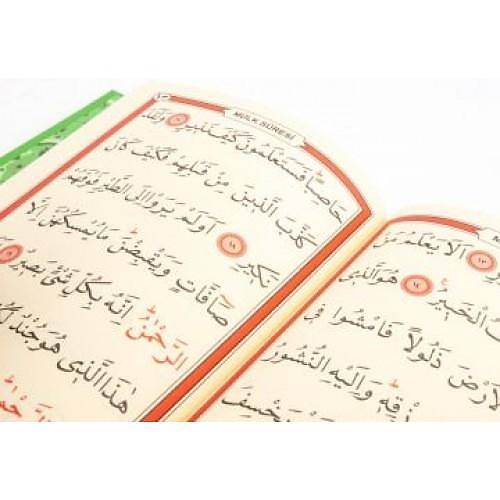 اَلَا يَعْلَمُ مَنْ ١٣
الْخَبِيرُ ١٤ هُوَ الَّذِي
ذَلُولًا فَامْشُوا فِي
وَاِلَيْهِ النُّشُورُ
يَخْسِفَ
MÜLK SÛRESİ
حَاصِبًا فَسَتَعْلَمُونَ كَيْفَ نَذِيرِ ١٧ وَلَقَدْ
كَذَّبَ الَّذِينَ مِنْ قَبْلِهِمْ فَكَيْفَ كَانَ
نَكِيرِ ١٨ اَوَلَمْ يَرَوْا اِلَى الطَّيْرِ فَوْقَهُمْ
صَافَّاتٍ وَيَقْبِضْنَ مَا يُمْسِكُهُنَّ اِلَّا
الرَّحْمٰنُ اِنَّهُ بِكُلِّ شَيْءٍ بَصِيرٌ ١٩
هٰذَا الَّذِي هُوَ جُنْدٌ